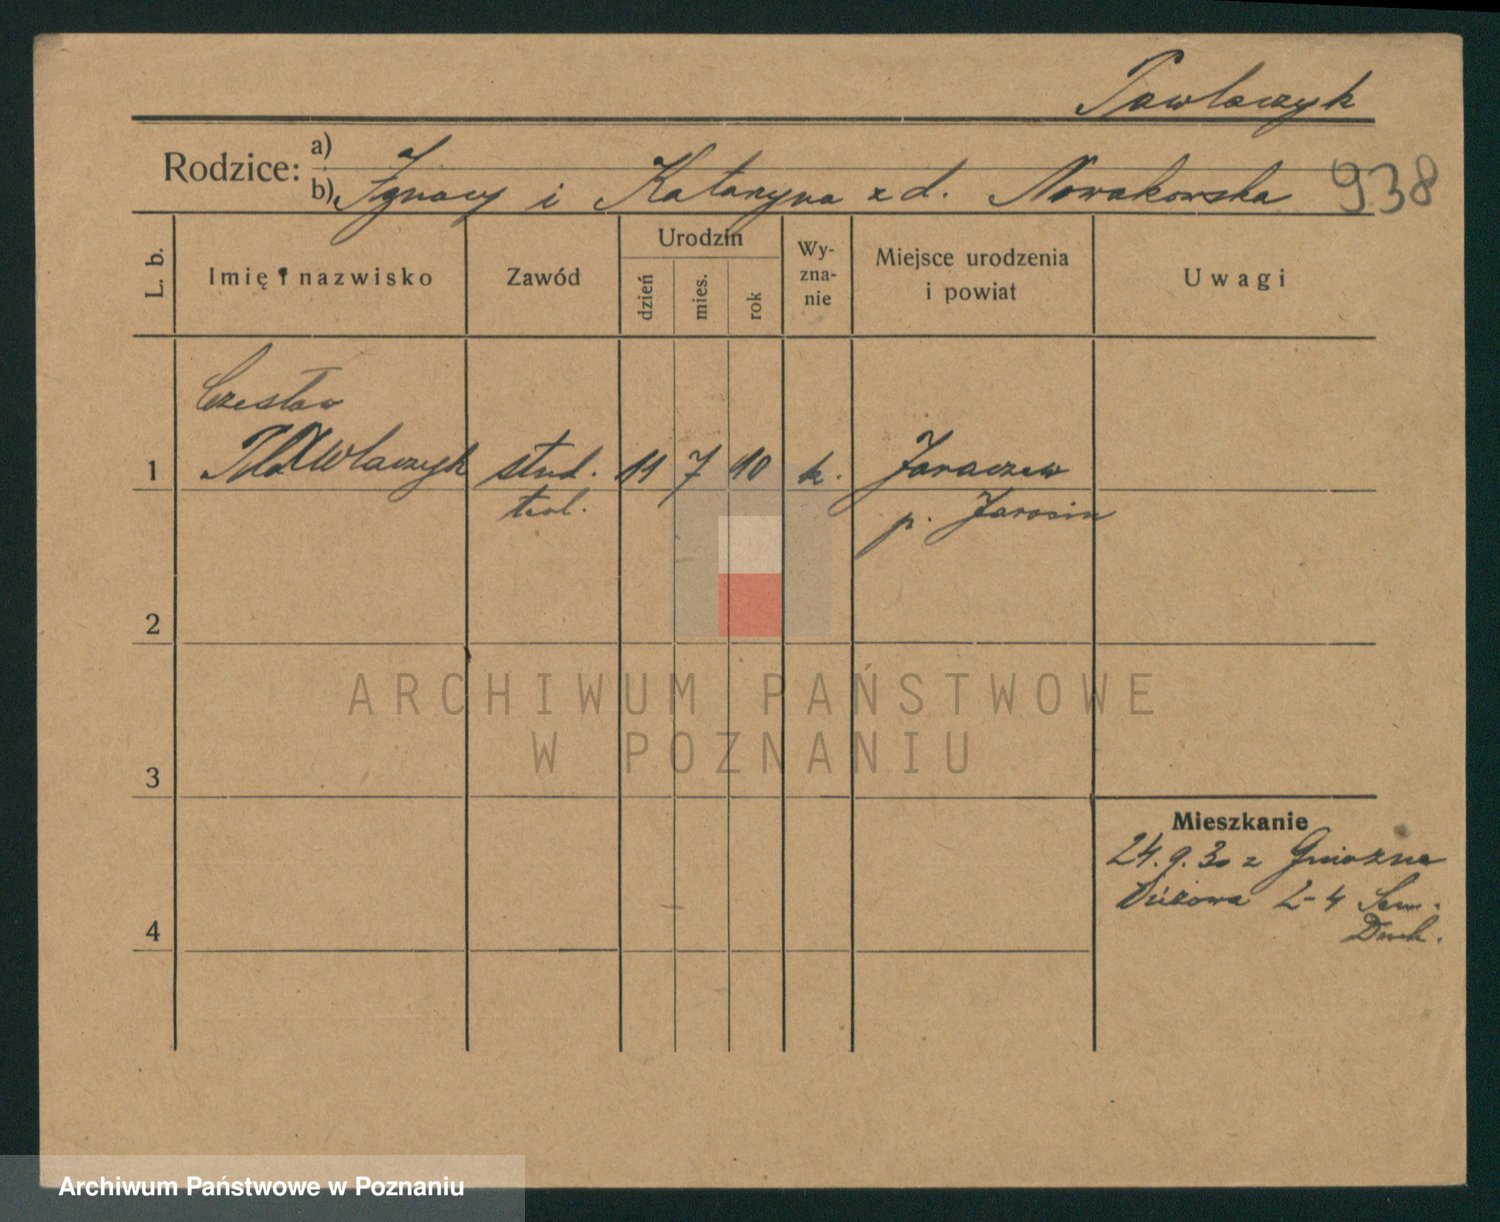 Pawlaczyk
Rodzice: a)
b) Ignacy i Katarzyna z d. Nowakowska 938
L. b.
Imię i nazwisko
Zawód
Urodzin
dzień
mies.
rok
Wy-
zna-
nie
Miejsce urodzenia
i powiat
Uwagi
Czesław
1 Pawlaczyk stud. 11 7 10 k. Jaraczew
teol. p. Jarocin
2
ARCHIWUM PAŃSTWOWE
W POZNANIU
3
Mieszkanie
24.9.30 z Gniezna
2-4 Sem.
Duch.
4
Archiwum Państwowe w Poznaniu